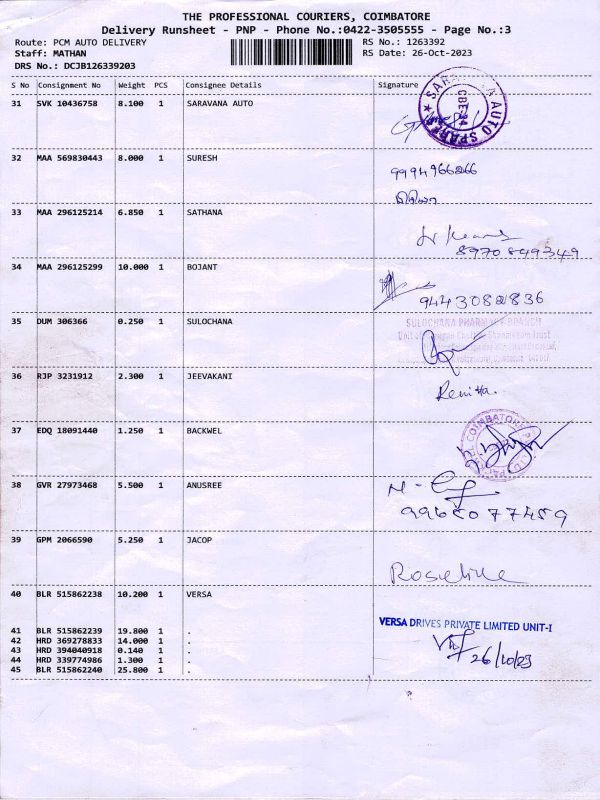 THE PROFESSIONAL COURIERS, COIMBATORE
Delivery Runsheet - PNP - Phone No.:0422-3505555 - Page No.:3
Route: PCM AUTO DELIVERY RS No.: 1263392
Staff: MATHAN RS Date: 26-Oct-2023
DRS No.: DCJB126339203
S No Consignment No Weight PCS Consignee Details Signature
31 SVK 10436758 8.100 1 SARAVANA AUTO
SARAVANA AUTO SPARES
32 MAA 569830443 8.000 1 SURESH
33 MAA 296125214 6.850 1 SATHANA
8970849349
34 MAA 296125299 10.000 1 BOJANT
9443082836
35 DUM 306366 0.250 1 SULOCHANA
SULOCHANA PHARMACY BRANCH
36 RJP 3231912 2.300 1 JEEVAKANI
37 EDQ 18091440 1.250 1 BACKWEL
COIMBATORE
38 GVR 27973468 5.500 1 ANUSREE
9965077459
39 GPM 2066590 5.250 1 JACOP
Roseline
40 BLR 515862238 10.200 1 VERSA
VERSA DRIVES PRIVATE LIMITED UNIT-I
41 BLR 515862239 19.800 1 .
42 HRD 369278833 14.000 1 .
43 HRD 394040918 0.140 1 .
44 HRD 339774986 1.300 1 .
45 BLR 515862240 25.800 1 .
26/10/23